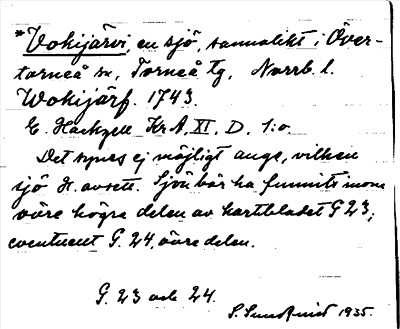 *Vokijärvi, en sjö, sannolikt i Över-
torneå sn, Torneå tg, Norrb. l.
Wokijärf. 1743.
E. Hackzell Kr.A. XI. D. 1:o.
Det synes ej möjligt ange, vilken
sjö H. avsett. Sjön bör ha funnits inom
övre högra delen av kartbladet G 23,
eventuellt G. 24, övre delen.
G. 23 och 24.
S. Sundqvist 1935.